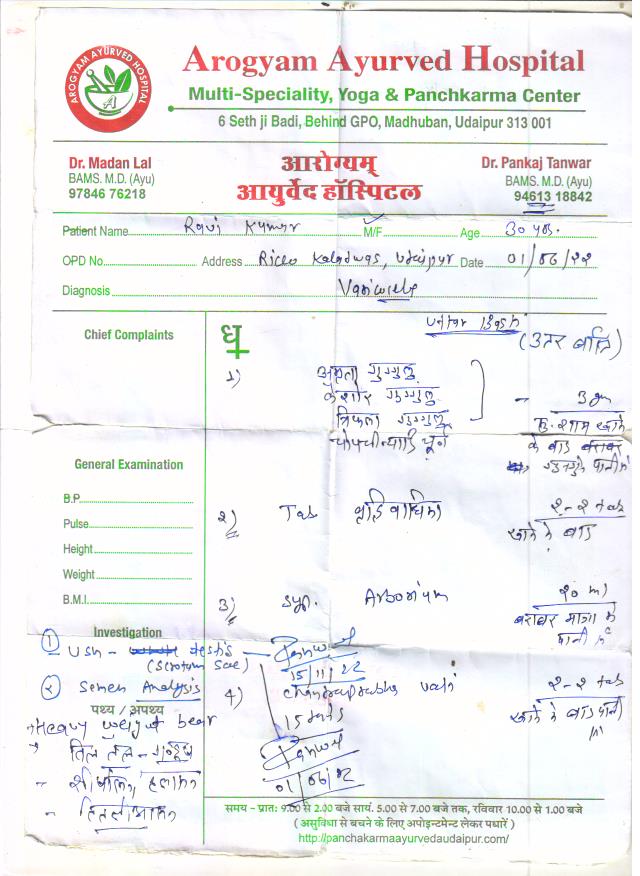 AROGYAM AYURVED HOSPITAL
Arogyam Ayurved Hospital
Multi-Speciality, Yoga & Panchkarma Center
6 Seth ji Badi, Behind GPO, Madhuban, Udaipur 313 001
Dr. Madan Lal
BAMS. M.D. (Ayu)
97846 76218
आरोग्यम्
आयुर्वेद हॉस्पिटल
Dr. Pankaj Tanwar
BAMS. M.D. (Ayu)
94613 18842
Patient Name Ravi Kumar M/F Age 30 yrs.
OPD No. Address Rico Kaladwas, Udaipur Date 01/06/22
Diagnosis
Chief Complaints
Uttar Basti
(उतर बस्ति)
१)
अमृता गुग्गुलु
कैशोर गुग्गुलु
त्रिफला गुग्गुलु
चोपचीन्यादि चूर्ण
3 gm
सु. शाम खाने
के बाद
गुनगुने पानी से
General Examination
B.P.
Pulse
Height
Weight
B.M.I.
२) Tab २-२ tab
खाने के बाद
३) Syp. २० ml
बराबर मात्रा के
पानी से
Investigation
① USG - testis
(Scrotum Sac)
15/11/22
② Semen Analysis
पथ्य / अपथ्य
Heavy weight bear
तिल तैल -
४) Chandraprabha vati
15 days
२-२ tab
खाने के बाद पानी
से
01/06/22
समय - प्रातः 9.00 से 2.00 बजे सायं. 5.00 से 7.00 बजे तक, रविवार 10.00 से 1.00 बजे
( असुविधा से बचने के लिए अपोइन्टमेन्ट लेकर पधारें )
http://panchakarmaayurvedaudaipur.com/